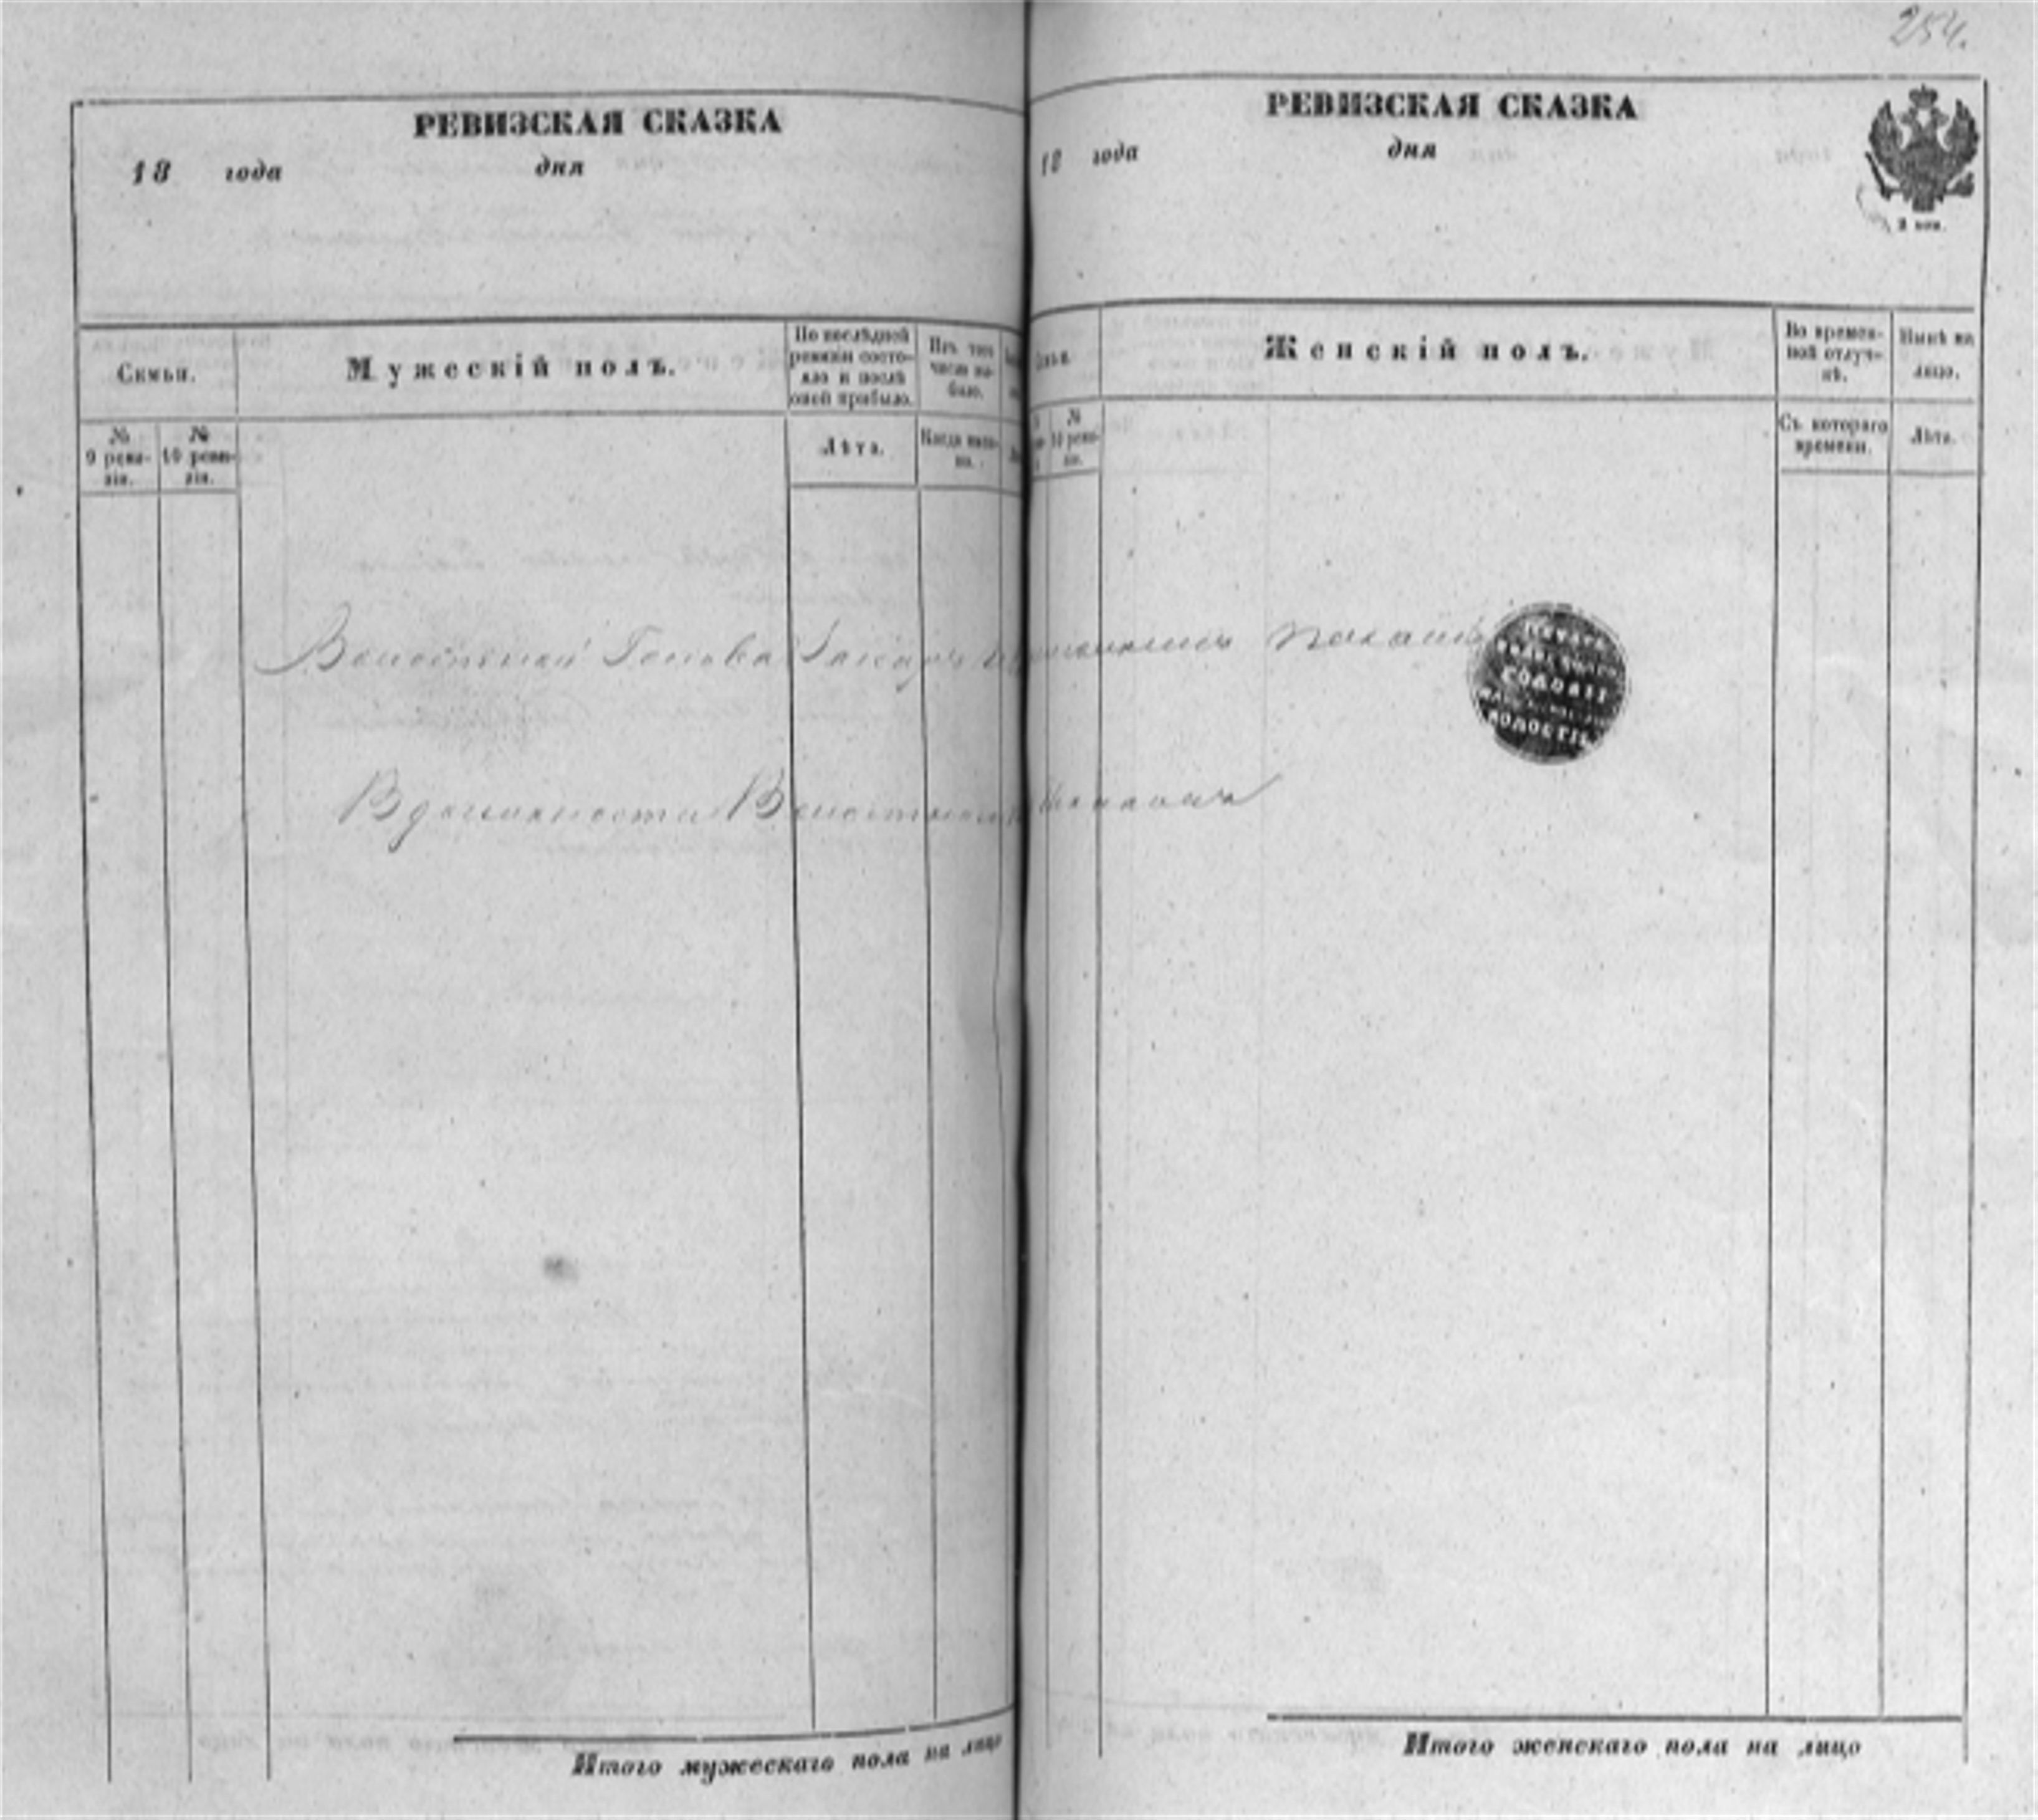 254.
РЕВИЗСКАЯ СКАЗКА
18 года дня
Семьи.
Мужескій полъ.
По послѣдней ревизіи состо-
яло и послѣ
оной прибыло.
Изъ того
числа вы-
было.
№
9 реви-
зіи.
№
10 реви-
зіи.
Лѣта.
Когда имен-
но.
Волостной Голова Захаръ
В должности Волостнаго
Итого мужескаго пола на лицо
РЕВИЗСКАЯ СКАЗКА
18 года дня
Женскій полъ.
Во времен-
ной отлуч-
кѣ.
Нынѣ на
лицо.
№
10 реви-
зіи.
Съ котораго
времени.
Лѣта.
ВОЛОСТИ
Итого женскаго пола на лицо